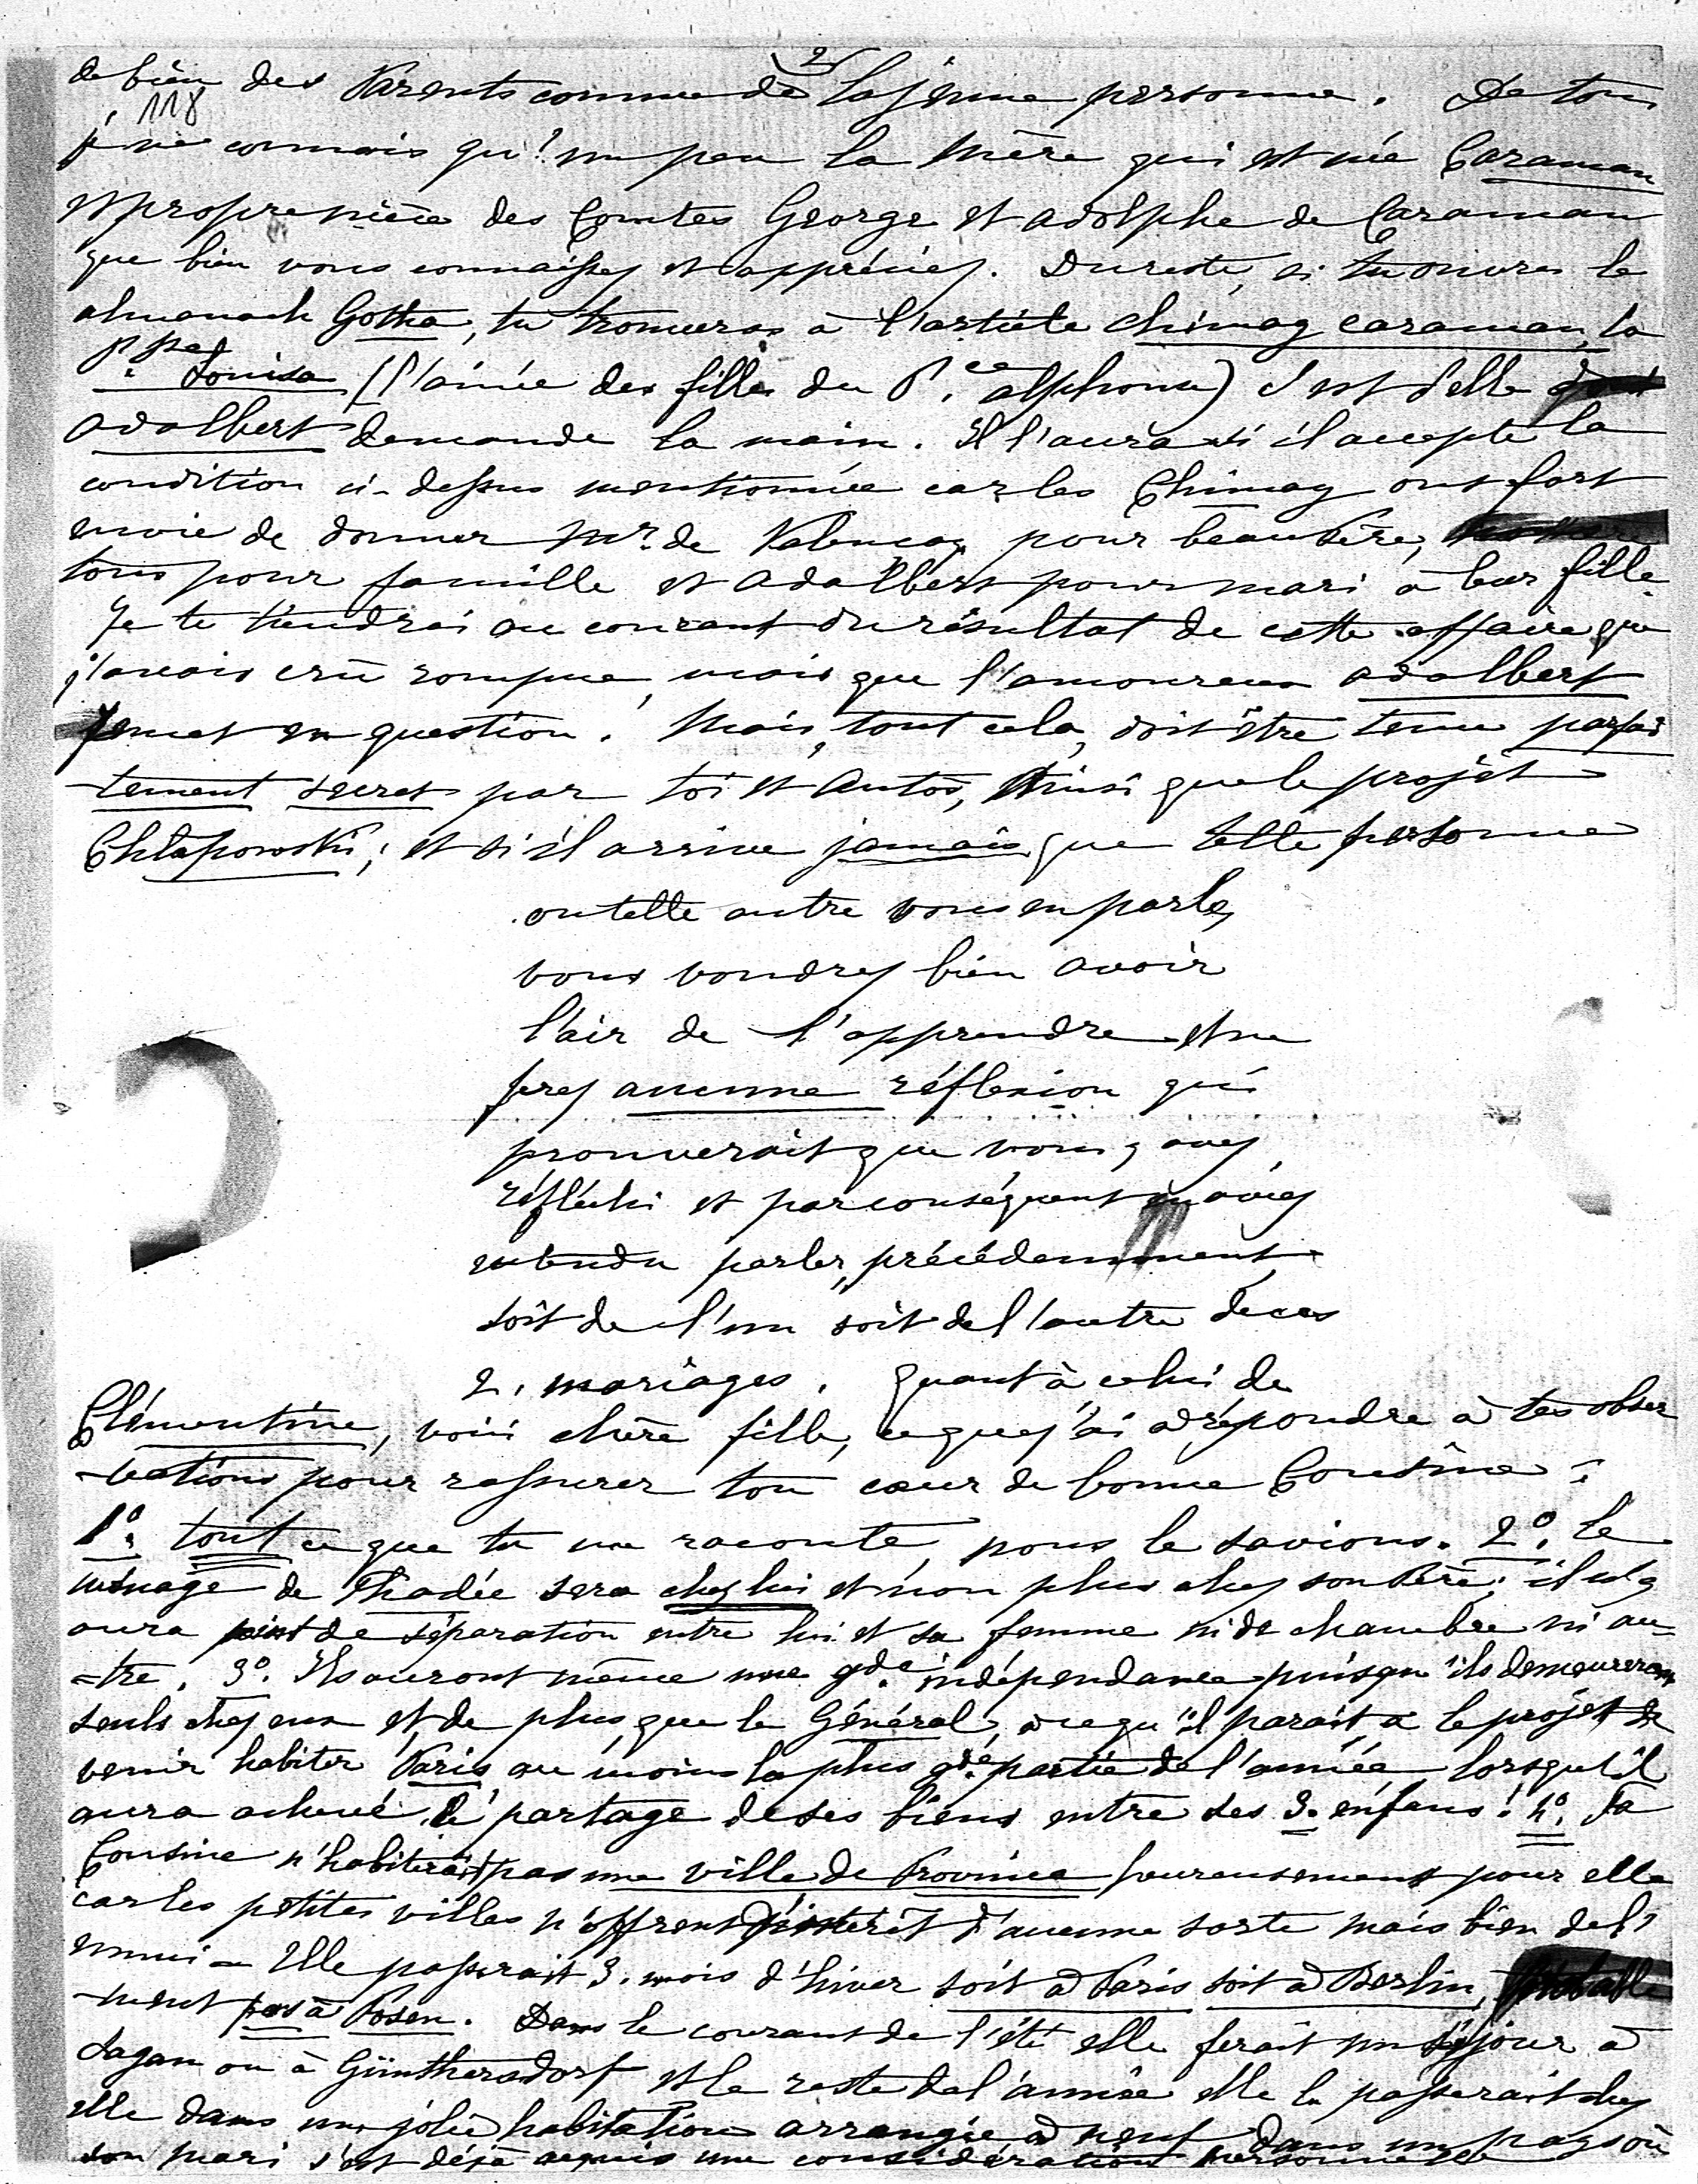 2
de bien des Parents comme de la jeune personne. De tous
118
je ne connais qu'un peu la Mère qui est née Caraman
et propre nièce des Comtes George et Adolphe de Caraman
que bien vous connaissez et appréciez. Du reste, si tu ouvres le
almanach Gotha, tu trouveras à l'article Chimay Caraman, la
Psse Louisa (l'ainée des filles du Pce Alphonse) c'est d'elle
Adalbert demande la main. Il l'aura si il accepte la
condition ci-dessus mentionnée car les Chimay ont fort
envie de donner Mr. de Valençay pour beau Père,
tous pour famille et Adalbert pour mari à leur fille.
Je te tiendrai au courant du résultat de cette affaire que
j'avais crû rompue, mais que l'amoureux Adalbert
remet en question. Mais, tout cela, doit être tenu parfai
-tement secret par toi et Antoi, Ainsi que le projet
Chlapowski; et si il arrive jamais que telle personne
ou telle autre vous en parle,
vous voudrez bien avoir
l'air de l'apprendre et ne
ferez aucune réflexion qui
prouverait que vous y avez
réfléchi et par conséquent en aviez
entendu parler, précédemment
soit de l'un soit de l'autre de ces
2. mariages. Quant à celui de
Clémentine, voici chère fille, ce que j'ai à répondre à tes obser
-vations pour rassurer ton cœur de bonne Cousine:
1º. tout ce que tu me raconte, nous le savions. 2º. Le
ménage de Thadée sera chez lui et non plus chez son Père; il n'y
aura point de séparation entre lui et sa femme ni de chambre ni au=
=tre. 3º. Ils auront même une gde. indépendance puisqu'ils demeureront
seuls chez eux et, de plus, que le Général, à ce qu'il parait, a le projet de
venir habiter Paris au moins la plus gde partie de l'année lorsqu'il
aura achevé le partage de ses biens entre ses 3. enfans. 4º. Ta
Cousine n'habiterait pas une ville de Province heureusement pour elle
car les petites villes n'offrent d'intérêt d'aucune sorte mais bien de l'
ennui - Elle passerait 3. mois d'hiver soit à Paris soit à Berlin, probable
-ment pas à Posen. Dans le courant de l'été elle ferait un séjour à
Sagan ou à Günthersdorf et le reste de l'année elle le passerait chez
elle dans une jolie habitation arrangée à neuf dans un pays où
son mari s'est déjà acquis une considération personnelle